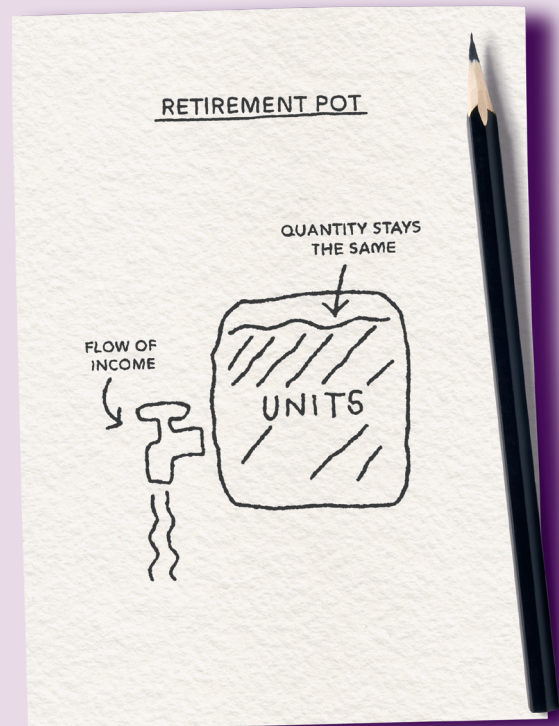 RETIREMENT POT
QUANTITY STAYS
THE SAME
FLOW OF
INCOME
UNITS